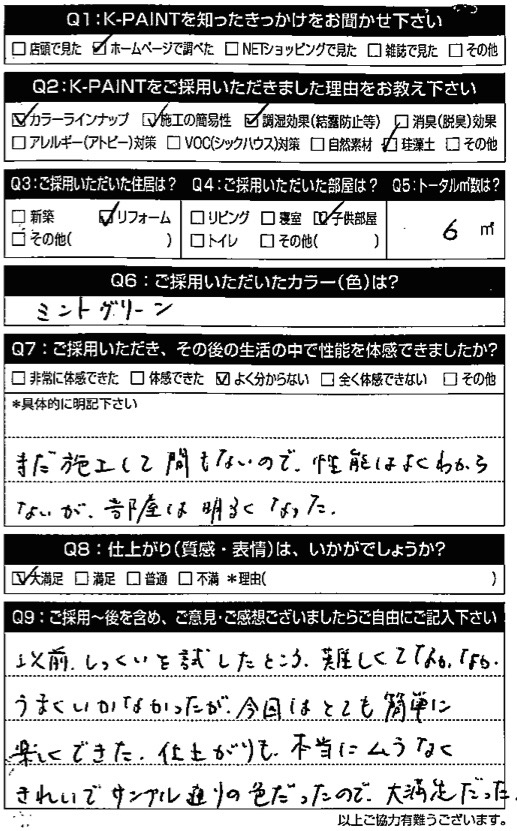 Q1:K-PAINTを知ったきっかけをお聞かせ下さい
□店頭で見た ☑ホームページで調べた □NETショッピングで見た □雑誌で見た □その他
Q2:K-PAINTをご採用いただきました理由をお教え下さい
☑カラーラインナップ ☑施工の簡易性 ☑調湿効果(結露防止等) □消臭(脱臭)効果
□アレルギー(アトピー)対策 □VOC(シックハウス)対策 □自然素材 ☑珪藻土 □その他
Q3:ご採用いただいた住居は? Q4:ご採用いただいた部屋は? Q5:トータル㎡数は?
□新築 ☑リフォーム □リビング □寝室 ☑子供部屋 6 ㎡
□その他( ) □トイレ □その他( )
Q6:ご採用いただいたカラー(色)は?
ミントグリーン
Q7:ご採用いただき、その後の生活の中で性能を体感できましたか?
□非常に体感できた □体感できた ☑よく分からない □全く体感できない □その他
*具体的に明記下さい
まだ施工して間もないので、性能はよくわから
ないが、部屋は明るくなった.
Q8:仕上がり(質感・表情)は、いかがでしょうか?
☑大満足 □満足 □普通 □不満 *理由( )
Q9:ご採用〜後を含め、ご意見・ご感想ございましたらご自由にご記入下さい
以前、しっくいを試したところ、難しくてなかなか
うまくいかなかったが、今回はとても簡単に
楽しくできた、仕上がりも、本当にムラなく
きれいでサンプル通りの色だったので、大満足だった.
以上ご協力有難うございます。